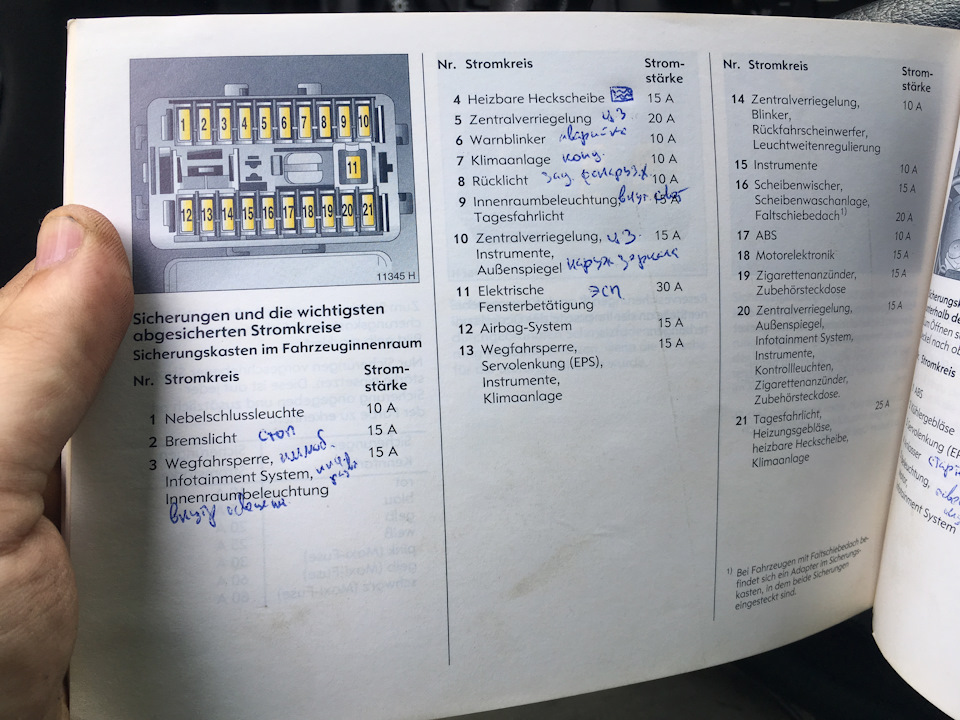 1 2 3 4 5 6 7 8 9 10
11
12 13 14 15 16 17 18 19 20 21
11345 H
Sicherungen und die wichtigsten
abgesicherten Stromkreise
Sicherungskasten im Fahrzeuginnenraum
Nr. Stromkreis Strom-
stärke
1 Nebelschlussleuchte 10 A
2 Bremslicht стоп 15 A
3 Wegfahrsperre, 15 A
Infotainment System,
Innenraumbeleuchtung
Nr. Stromkreis Strom-
stärke
4 Heizbare Heckscheibe 15 A
5 Zentralverriegelung ц.з 20 A
6 Warnblinker аварийка 10 A
7 Klimaanlage конд. 10 A
8 Rücklicht 10 A
9 Innenraumbeleuchtung, 15 A
Tagesfahrlicht
10 Zentralverriegelung, ц.з. 15 A
Instrumente,
Außenspiegel наруж зеркала
11 Elektrische эсп 30 A
Fensterbetätigung
12 Airbag-System 15 A
13 Wegfahrsperre, 15 A
Servolenkung (EPS),
Instrumente,
Klimaanlage
Nr. Stromkreis Strom-
stärke
14 Zentralverriegelung, 10 A
Blinker,
Rückfahrscheinwerfer,
Leuchtweitenregulierung
15 Instrumente 10 A
16 Scheibenwischer, 15 A
Scheibenwaschanlage,
Faltschiebedach1) 20 A
17 ABS 10 A
18 Motorelektronik 15 A
19 Zigarettenanzünder, 15 A
Zubehörsteckdose
20 Zentralverriegelung, 15 A
Außenspiegel,
Infotainment System,
Instrumente,
Kontrollleuchten,
Zigarettenanzünder,
Zubehörsteckdose.
21 Tagesfahrlicht, 25 A
Heizungsgebläse,
heizbare Heckscheibe,
Klimaanlage
1) Bei Fahrzeugen mit Faltschiebedach be-
findet sich ein Adapter im Sicherungs-
kasten, in dem beide Sicherungen
eingesteckt sind.
Stromkreis
ABS